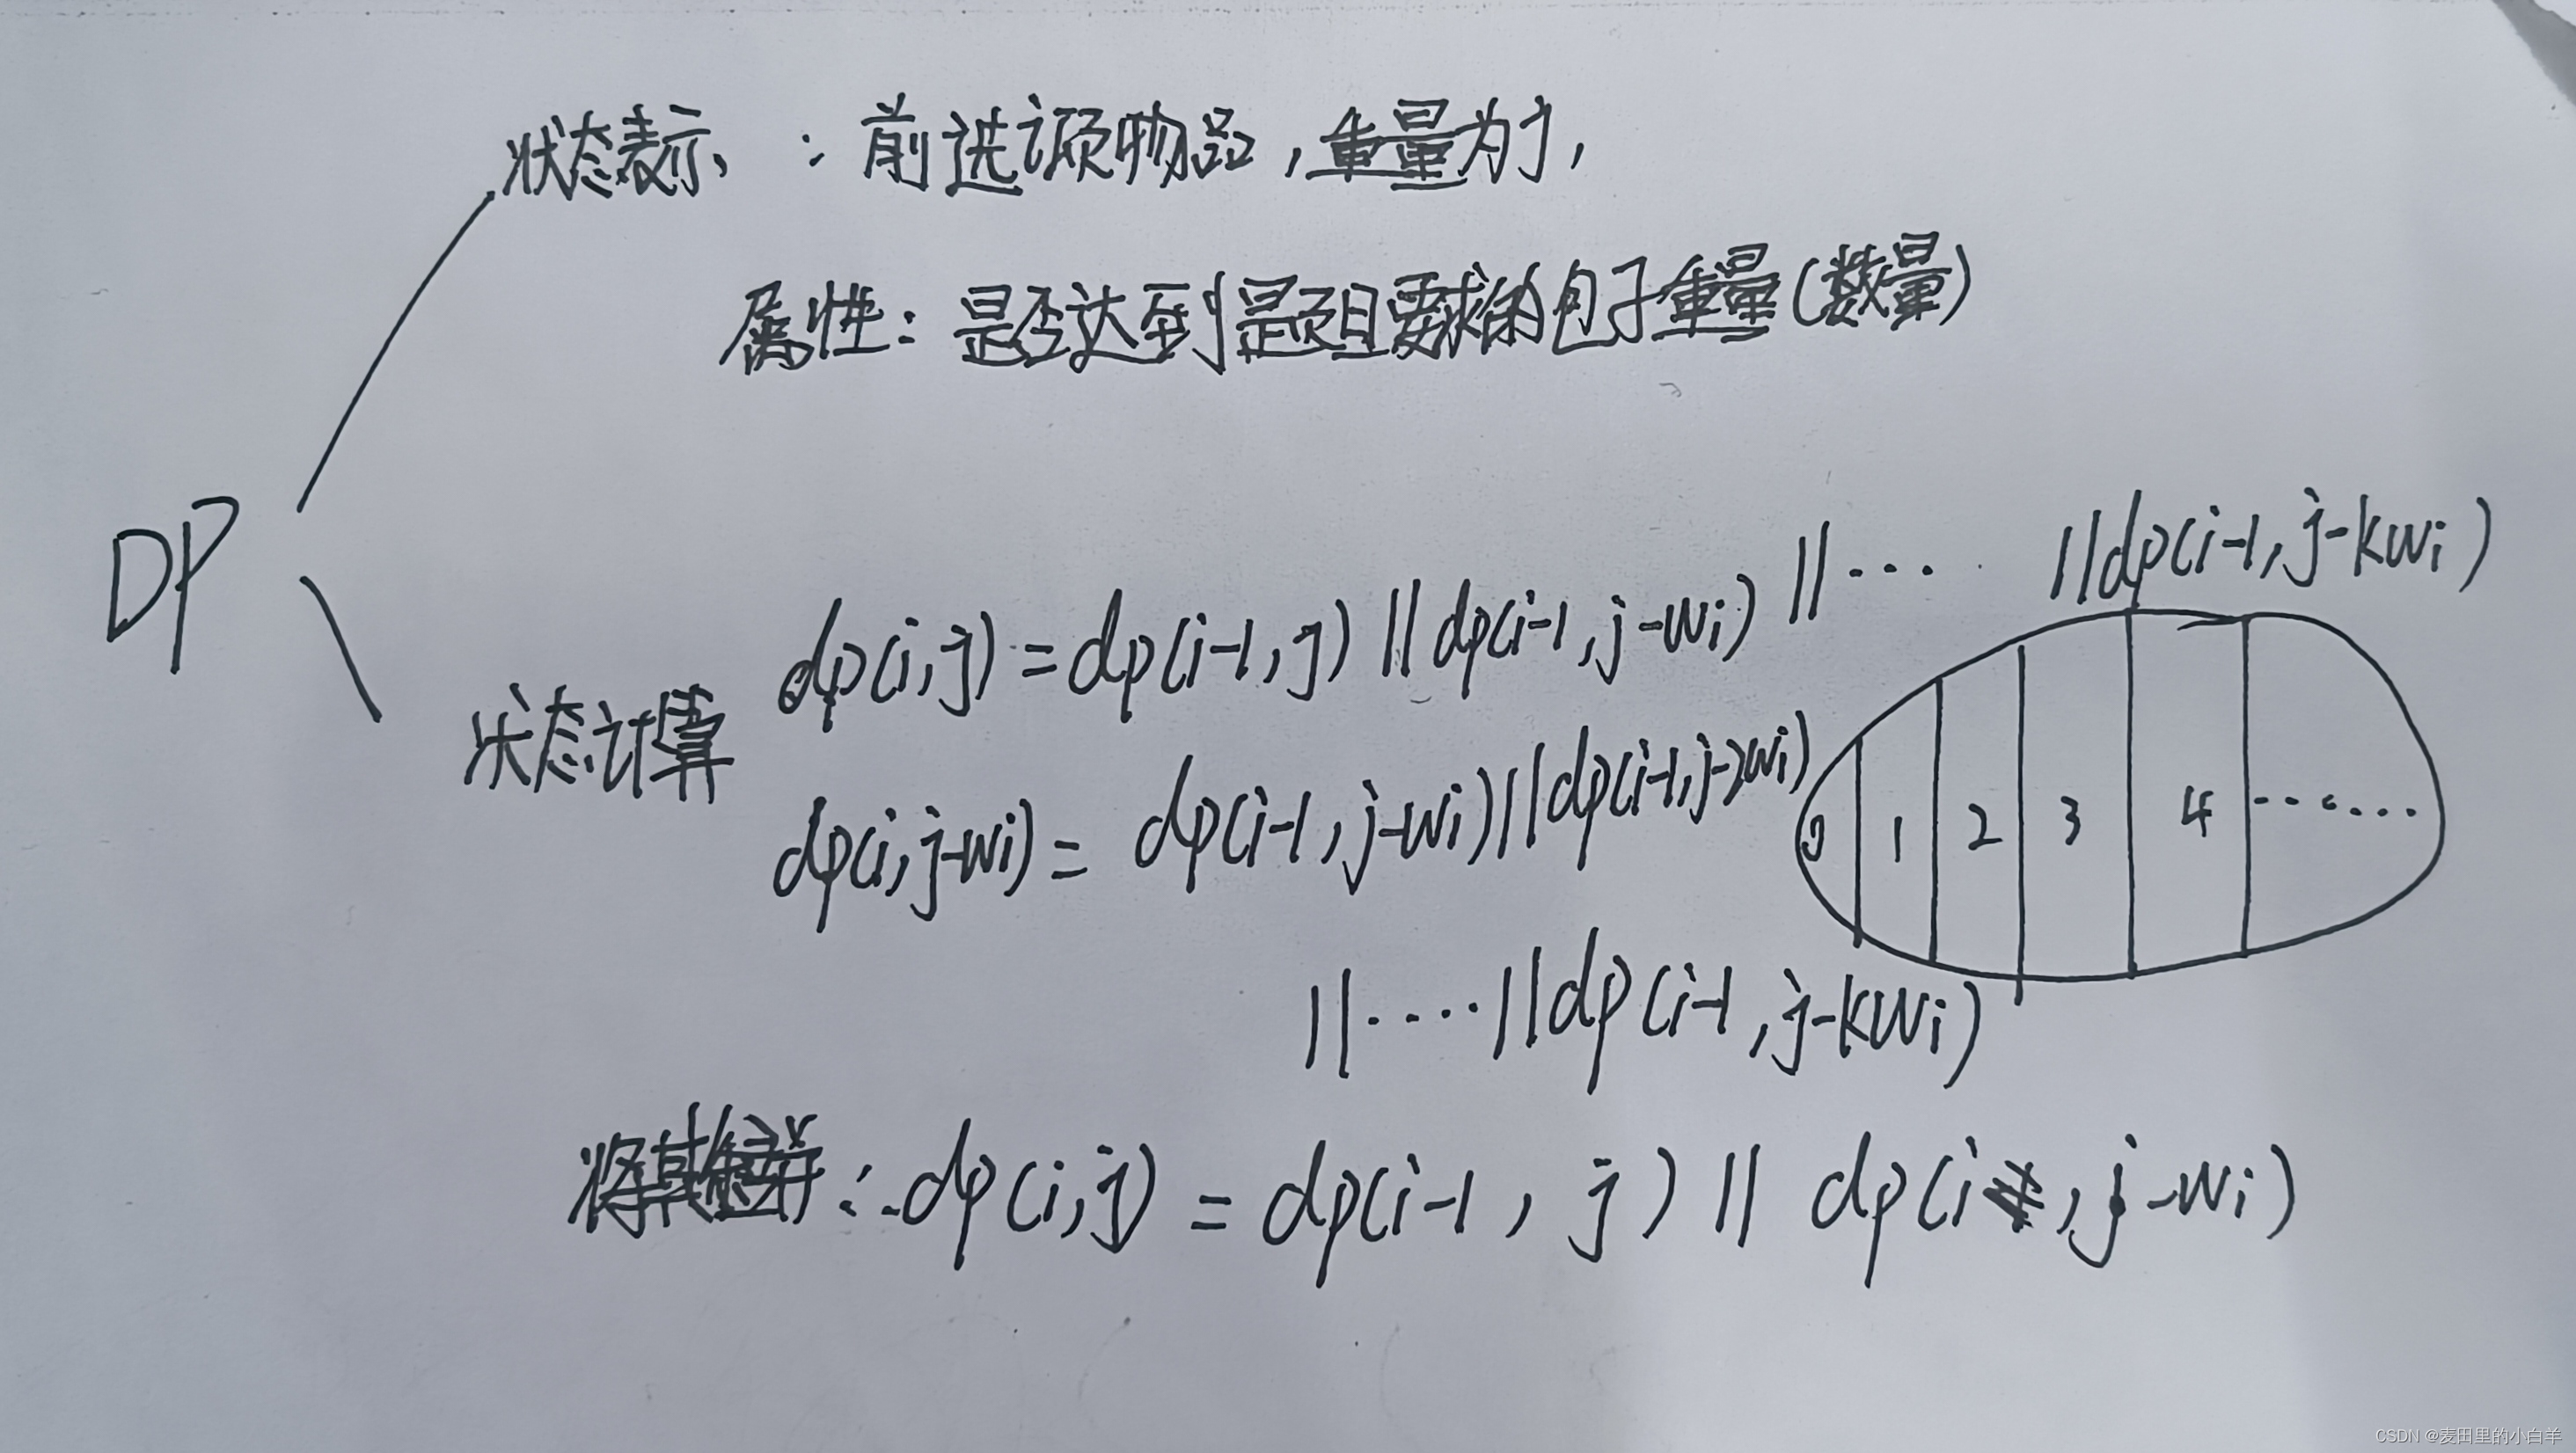 状态表示、：前选i项物品，重量为j，
属性：是否达到是题目要求的包子重量(数量)
DP
dp(i,j)=dp(i-1,j)||dp(i-1,j-wi)||.... ||dp(i-1,j-kwi)
状态计算
dp(i,j-wi)=dp(i-1,j-wi)||dp(i-1,j-2wi)
0 1 2 3 4 ......
||....||dp(i-1,j-kwi)
将其 ∴dp(i,j)=dp(i-1,j)||dp(i,j-wi)
CSDN @麦田里的小白羊